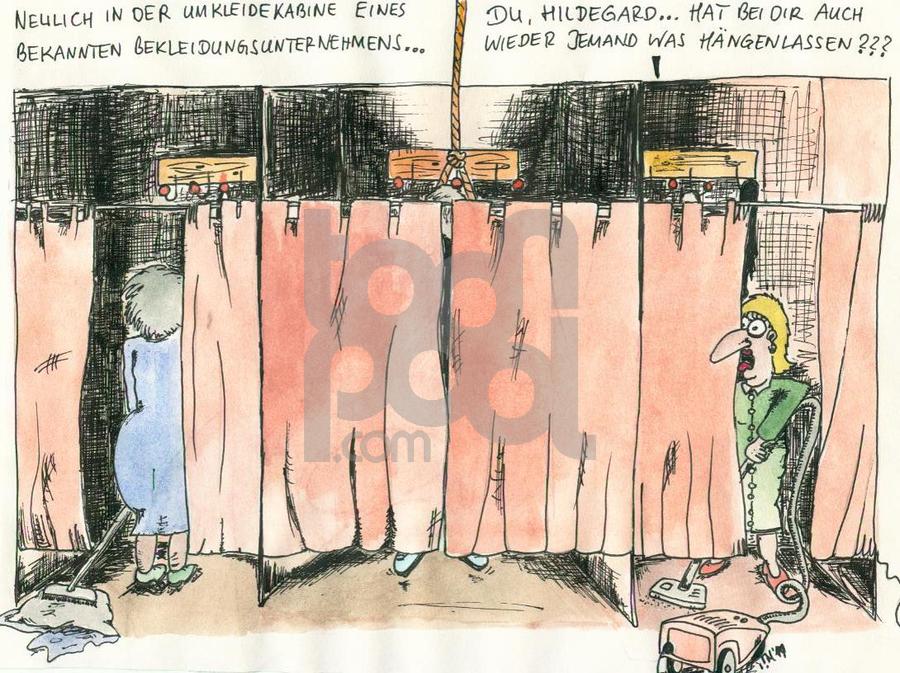 NEULICH IN DER UMKLEIDEKABINE EINES
BEKANNTEN BEKLEIDUNGSUNTERNEHMENS...
DU, HILDEGARD... HAT BEI DIR AUCH
WIEDER JEMAND WAS HÄNGENLASSEN???
toonpool
.com